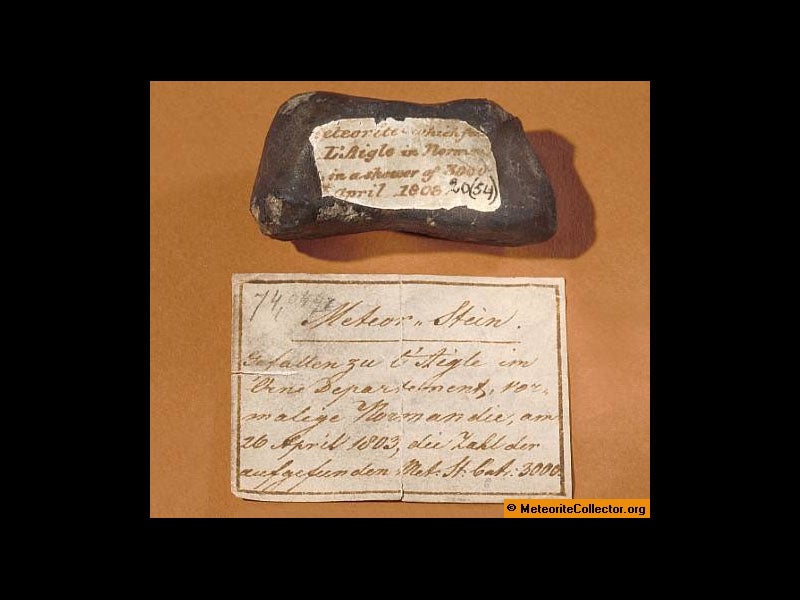 eteorite which fe
L'Aigle in Norm
in a shower of 3000
April 1803
20(54)
74,
Meteor-Stein.
Gefallen zu l'Aigle im
Orne Departement, vor-
malige Normandie, am
26 April 1803, die Zahl der
aufgefunden Met: St. bet: 3000.
© MeteoriteCollector.org